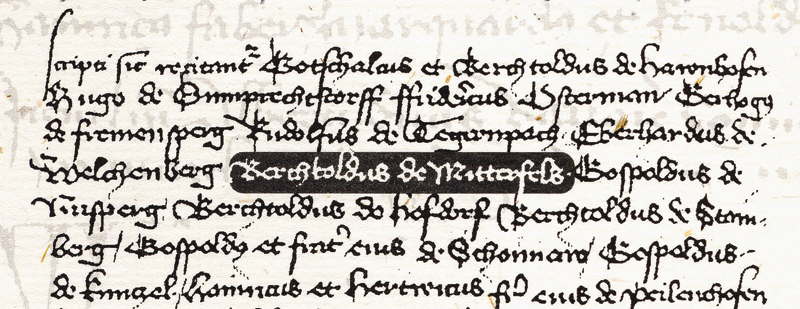 scripti sic recitantr Gotschalcus et Berchtoldus de Hawnhofen
Hugo de Rumprechtstorff ffridericus Osterman Hertzogy
de firmensperg Rudolfus de Tegernpach Eberhardus de
Welchenberg Berchtoldus de Mitterfels Gospoldus de
Nursperg Berchtoldus de Hofdorf Berchtoldus de Stam-
berg Gospoldy et frater eius de Schonnaw Gospoldus
de kunzel Hainricus et Hertwicus fr eius de peilenhofen